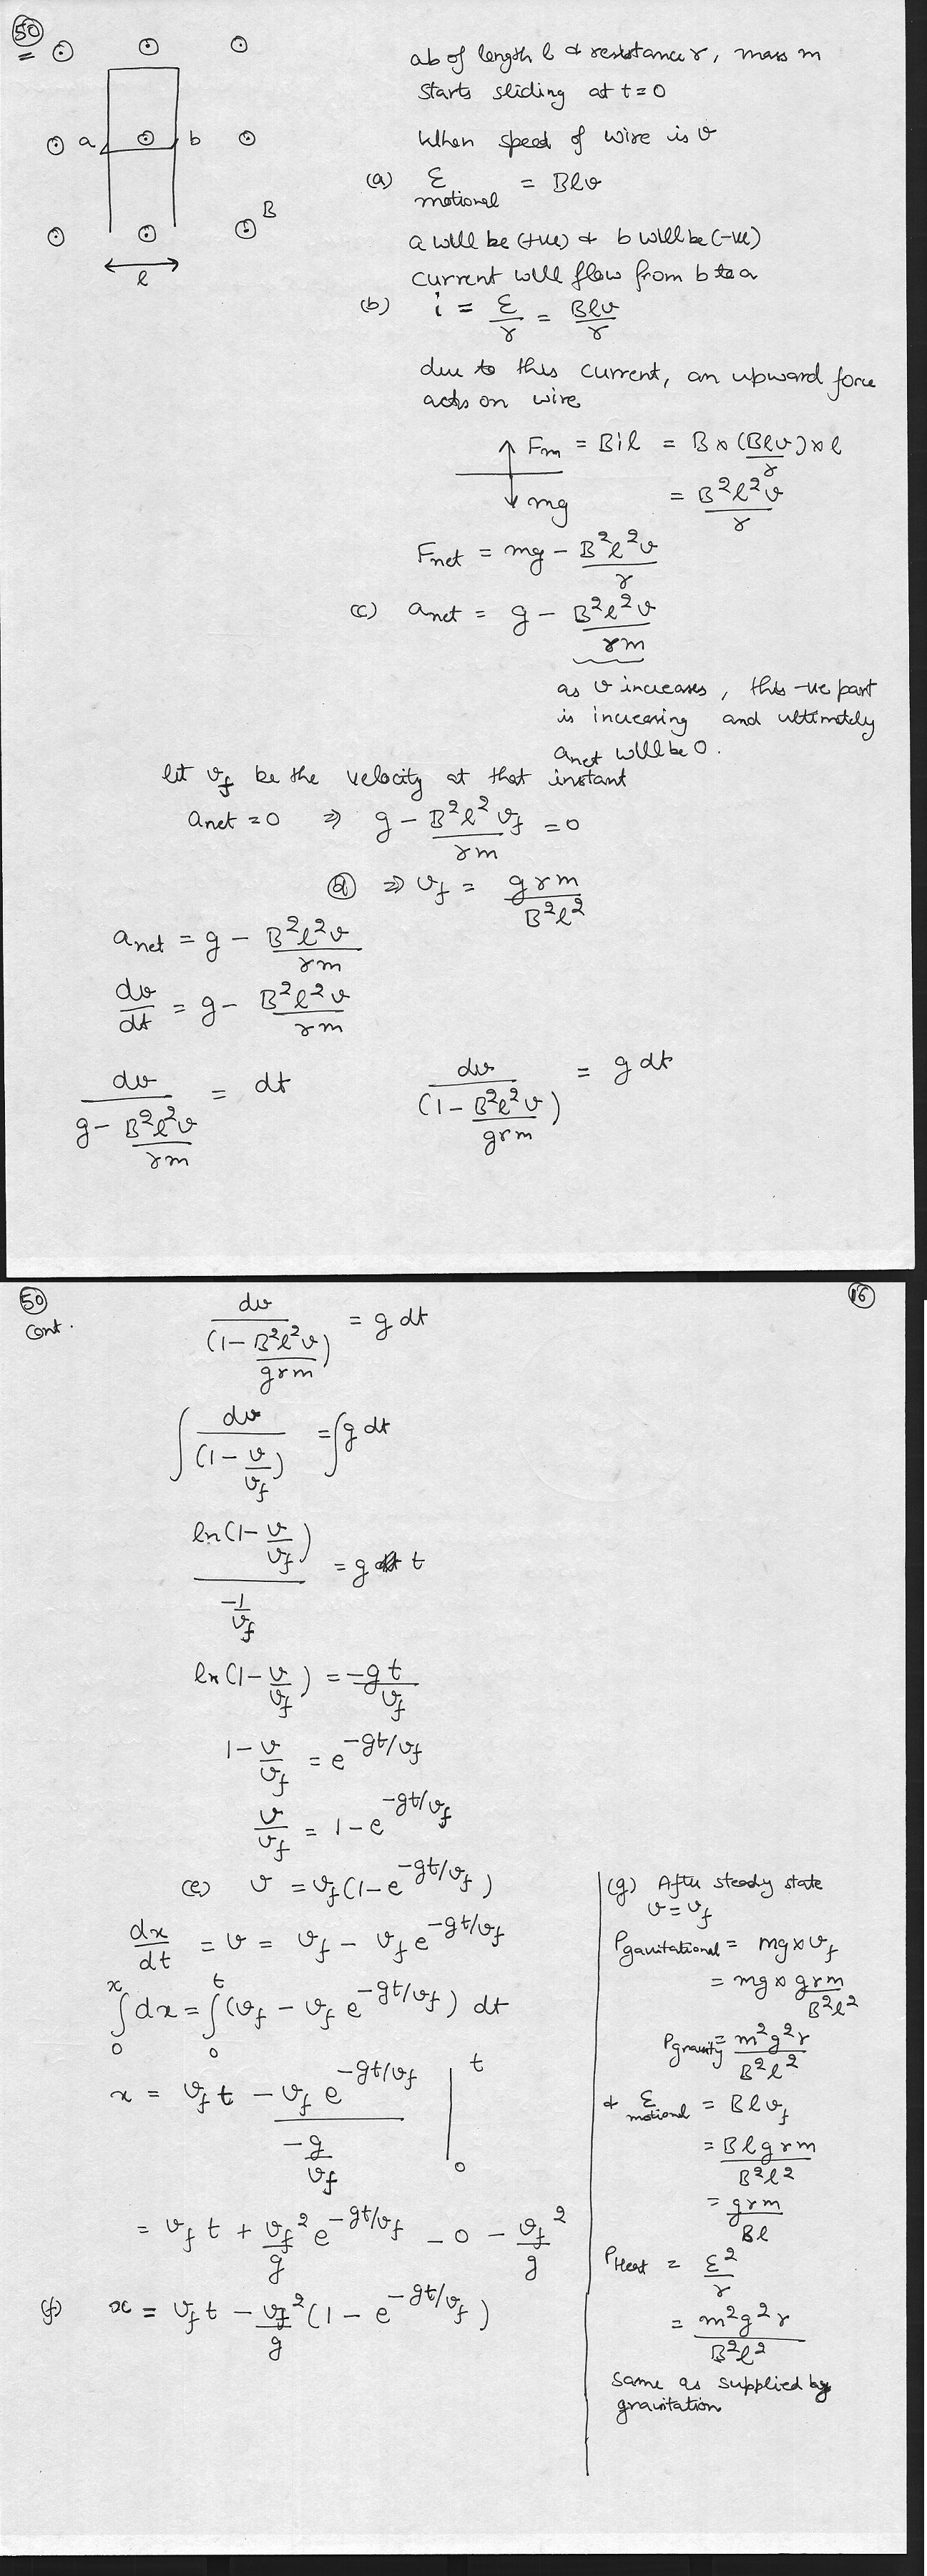 50
a b
B
l
ab of length l & resistance r, mass m
starts sliding at t = 0
When speed of wire is v
(a) ε motional = Blv
a will be (+ve) & b will be (-ve)
current will flow from b to a
(b) i = ε/r = Blv/r
due to this current, an upward force
acts on wire
Fm = Bil = B × (Blv/r) × l
mg = B²l²v/r
Fnet = mg - B²l²v/r
(c) anet = g - B²l²v/rm
as v increases, this -ve part
is increasing and ultimately
anet will be 0.
let vf be the velocity at that instant
anet = 0 ⇒ g - B²l²vf/rm = 0
(d) ⇒ vf = grm/B²l²
anet = g - B²l²v/rm
dv/dt = g - B²l²v/rm
dv/(g - B²l²v/rm) = dt dv/(1 - B²l²v/grm) = g dt
50 16
cont.
dv/(1 - B²l²v/grm) = g dt
∫ dv/(1 - v/vf) = ∫ g dt
ln(1 - v/vf)/(-1/vf) = g t
ln(1 - v/vf) = -gt/vf
1 - v/vf = e^(-gt/vf)
v/vf = 1 - e^(-gt/vf)
(e) v = vf(1 - e^(-gt/vf))
dx/dt = v = vf - vf e^(-gt/vf)
∫₀ˣ dx = ∫₀ᵗ (vf - vf e^(-gt/vf)) dt
x = vf t - vf e^(-gt/vf)/(-g/vf) |₀ᵗ
= vf t + vf²/g e^(-gt/vf) - 0 - vf²/g
(f) x = vf t - vf²/g (1 - e^(-gt/vf))
(g) After steady state
v = vf
Pgavitational = mg × vf
= mg × grm/B²l²
Pgravity = m²g²r/B²l²
& ε motional = Blvf
= Blgrm/B²l²
= grm/Bl
PHeat = ε²/r
= m²g²r/B²l²
same as supplied by
gravitation